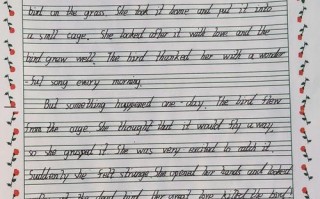 bird on the grass. She took it home and put it into
a small cage. She looked after it with love and the
bird grew well. The bird thanked her with a wonder
-ful song every morning.
But something happened one-day. The bird flew
from the cage. She thought that it would fly away,
so she grasped it. She was very excited to catch it.
Suddenly she felt strange. She opened her hands and looked
the bird. Her great love killed the bird!